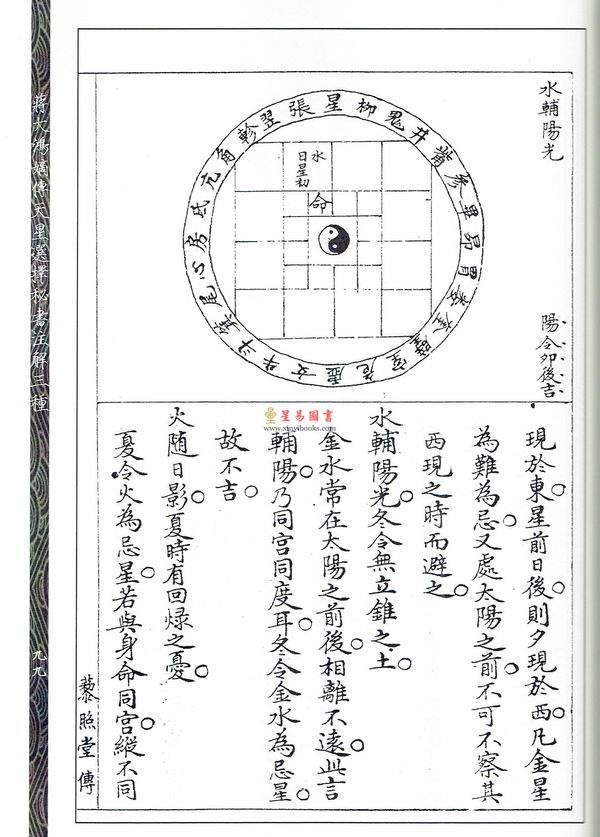 水輔陽光
陽令卯後吉
張星柳鬼井觜參畢昴胃婁奎壁室危虛女牛斗箕尾心房氐亢角軫翌
水
日星初
命
現於東星前日後則夕現於西凡金星
為難為忌又處太陽之前不可不察其
西現之時而避之
水輔陽光冬令無立錐之土
金水常在太陽之前後相離不遠此言
輔陽乃同宮同度耳冬令金水為忌星
故不吉
火随日影夏時有回祿之憂
夏令火為忌星若與身命同宮縱不同
星易圖書
www.xinyibooks.com
蔣大鴻嫡傳天星選擇秘書注解三種
九九
藜照堂傳